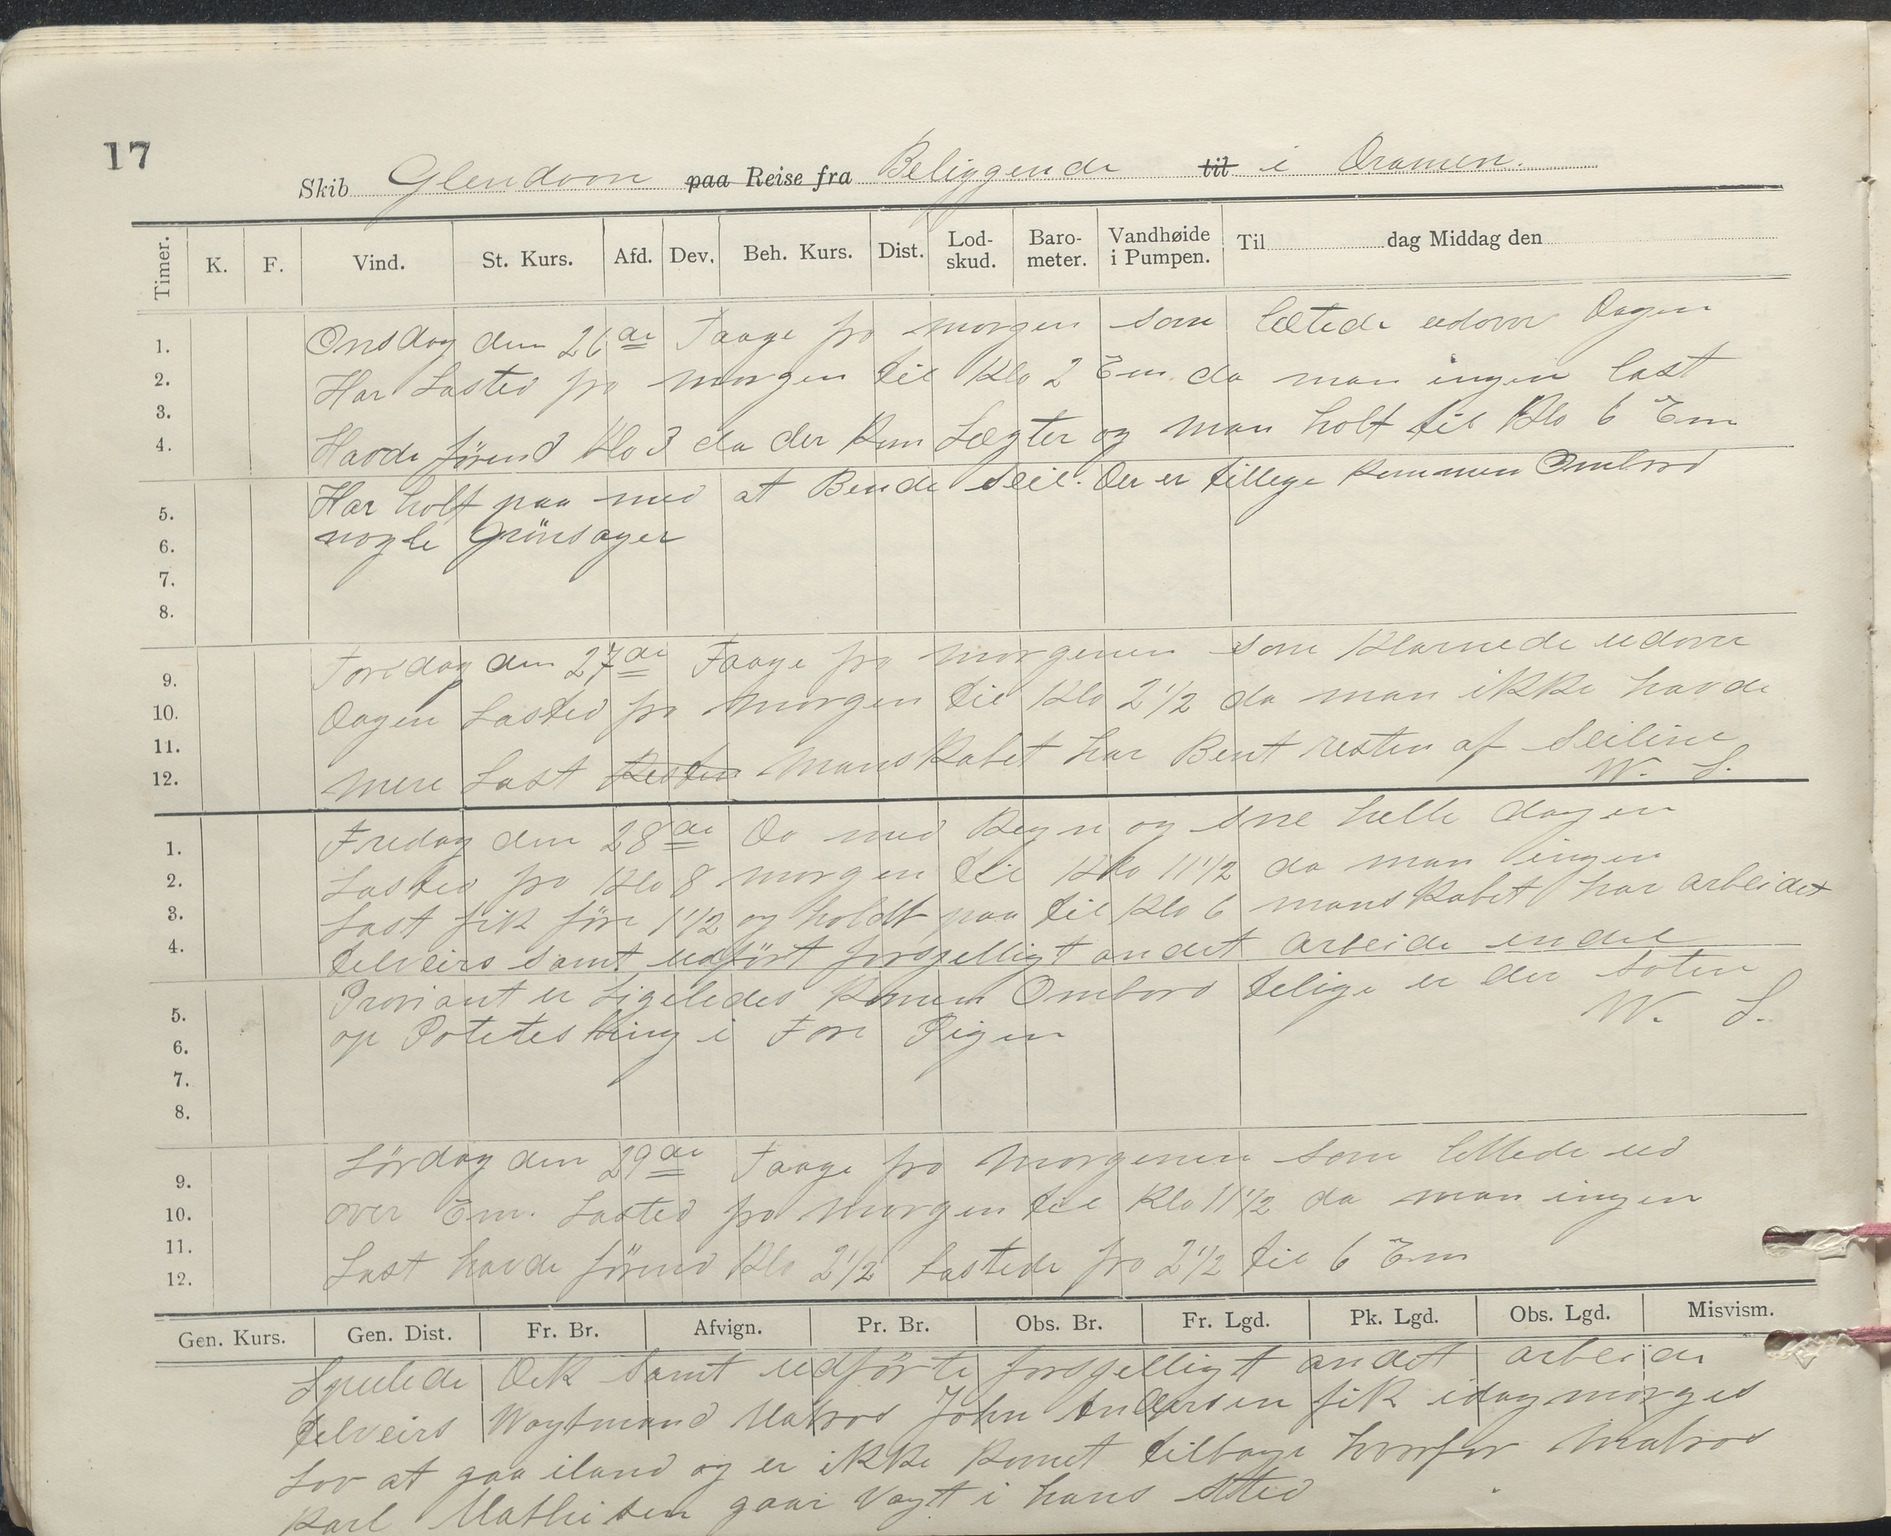 17
Skib Glendoon paa Reise fra Beliggende til i Dramen.
Timer. K. F. Vind. St. Kurs. Afd. Dev. Beh. Kurs. Dist. Lod-skud. Baro-meter. Vandhøide i Pumpen. Til dag Middag den
1. Onsdag den 26de Taage fra morgen som letede udover Dagen
2. Har Lasted fra morgen til Klo 2 Em. da man ingen last
3.
4. Havde førend Klo 3 da der Kom Lægter og man holt til Klo 6 Em
5. Har holt paa med at Bende Seil. Der er tillege Kommen Ombord
6. nogle Grønsager
7.
8.
9. Torsdag den 27de Taage fra morgenen som Klarnede udover
10. Dagen Lasted fra morgen til Klo 2 1/2 da man ikke havde
11.
12. mere Last Resten Manskabet har Bent resten af Seilene
W. S.
1. Fredag den 28de Do med Regn og Sne helle dagen
2. Lasted fra Klo 8 morgen til Klo 11 1/2 da man ingen
3. Last fik før 1 1/2 og holdt paa til Klo 6 manskabet har arbeidet
4. tilveirs samt udført forsjelligt andet Arbeide endel
5. Proviant er Ligeledes Komen Ombord telige er der saten
W. S.
6. op Potetesbing i Fore Pigen
7.
8.
9. Lørdag den 29de Taage fra Morgenen som lettede ud
10. over Em. Lasted fra morgen til Klo 11 1/2 da man ingen
11.
12. Last havde førend Klo 2 1/2 Lastede fra 2 1/2 til 6 Em
Gen. Kurs. Gen. Dist. Fr. Br. Afvign. Pr. Br. Obs. Br. Fr. Lgd. Pk. Lgd. Obs. Lgd. Misvism.
Spulede Dek Samt udførte forsjelligt andet arbeide
tilveirs Vagtmand Matros John Andersen fik idag morges
Lov at gaa iland og er ikke Komet tilbage hvorfor Matros
Karl Mathisen gaar Vagt i hans Sted